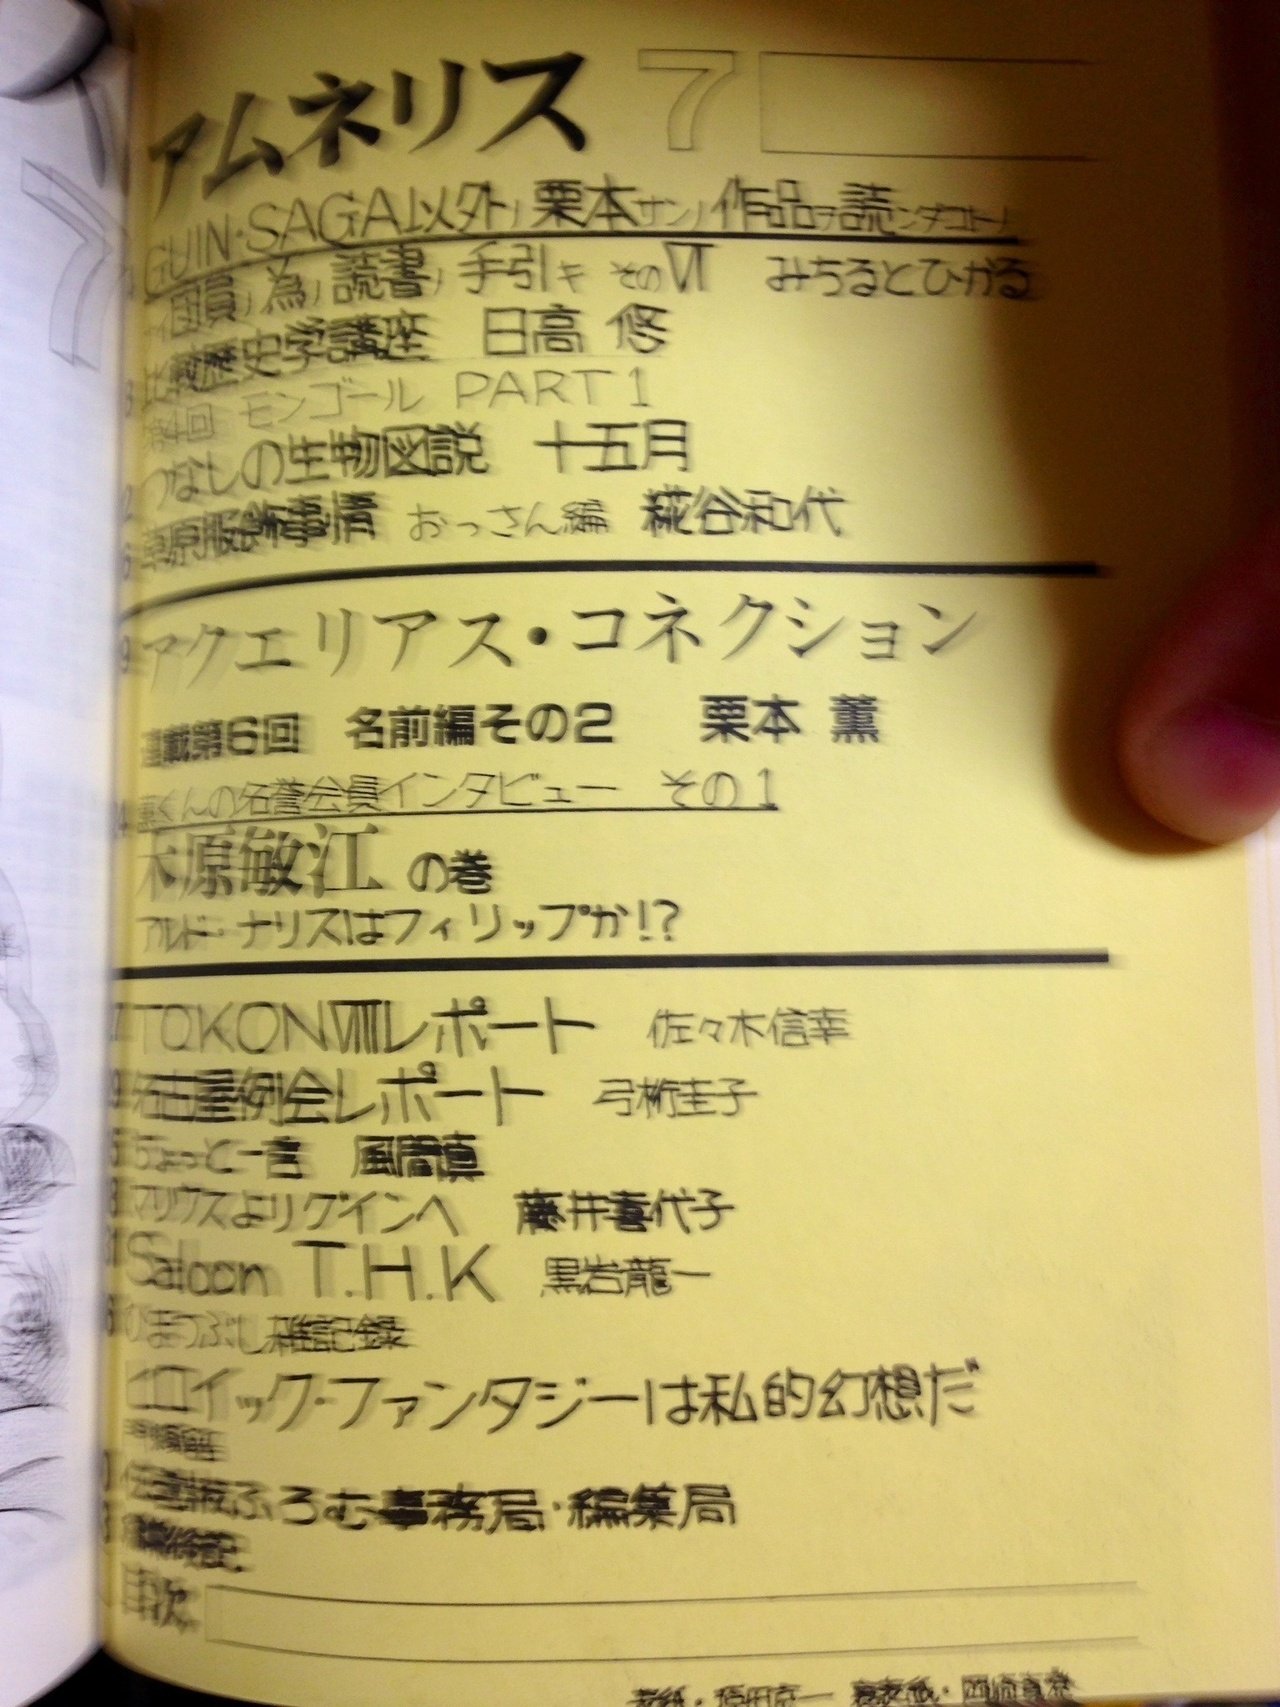 アムネリス 7
GUIN・SAGA以外ノ栗本サンノ作品ヲ読ンダコトノ
ナイ団員ノ為ノ読書ノ手引キ その VI みちるとひかる
比較歴史学講座 日高 悠
第4回 モンゴール PART 1
つなしの生物図説 十五月
草原服飾事情 おっさん編 糀谷和代
アクエリアス・コネクション
連載第6回 名前編その2 栗本 薫
薫くんの名誉会員インタビュー その1
木原敏江 の巻
アルド・ナリスはフィリップか!?
TOKON VIIIレポート 佐々木信幸
名古屋例会レポート 弓桁圭子
ちょっと一言 風間真
マリウスよりグインへ 藤井喜代子
Saloon T.H.K 黒岩龍一
ひまつぶし雑記録
ヒロイック・ファンタジーは私的幻想だ
伝言板ふろむ事務局・編集局
編集後記
目次
表紙・原田京一 裏表紙・